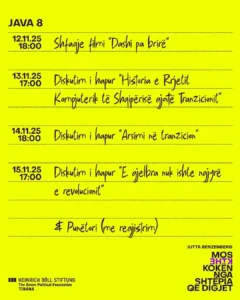 JAVA 8
12.11.25
18:00
Shfaqje filmi "Dashi pa brirë"
13.11.25
17:00
Diskutim i hapur "Historia e Rrjetit
Kompjuterik të Shqipërisë gjatë Tranzicionit"
14.11.25
18:00
Diskutim i hapur "Arsimi në tranzicion"
15.11.25
17:00
Diskutim i hapur "E gjelbra nuk ishte ngjyrë
e revolucionit"
& Punëtori (me regjistrim)
HEINRICH BÖLL STIFTUNG
The Green Political Foundation
TIRANA
JUTTA BENZENBERG
MOS
KTHE
KOKËN
NGA
SHTËPIA
QË DIGJET